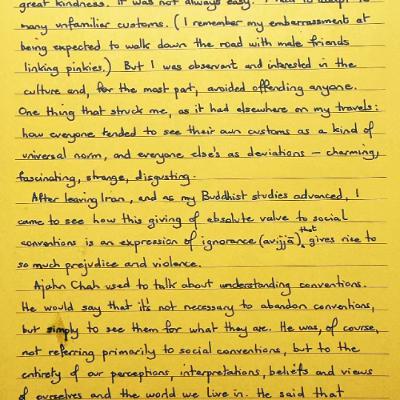 great kindness. It was not always easy. I had to adapt to
many unfamiliar customs. (I remember my embarrassment at
being expected to walk down the road with male friends
linking pinkies.) But I was observant and interested in the
culture and, for the most part, avoided offending anyone.
One thing that struck me, as it had elsewhere on my travels:
how everyone tended to see their own customs as a kind of
universal norm, and everyone else's as deviations – charming,
fascinating, strange, disgusting.
After leaving Iran, and as my Buddhist studies advanced, I
came to see how this giving of absolute value to social
conventions is an expression of ignorance (avijjā) that gives rise to
so much prejudice and violence.
Ajahn Chah used to talk about understanding conventions.
He would say that it's not necessary to abandon conventions,
but simply to see them for what they are. He was, of course,
not referring primarily to social conventions, but to the
entirety of our perceptions, interpretations, beliefs and views
of ourselves and the world we live in. He said that